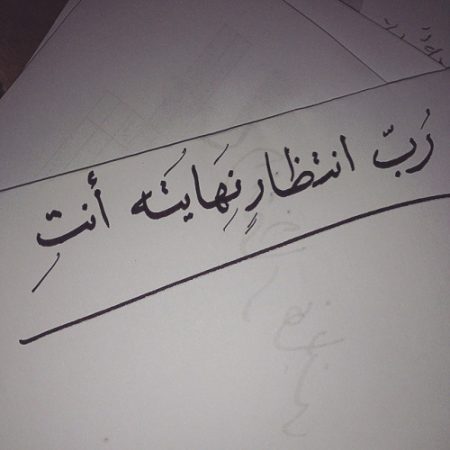 رُبّ انتظارٍ نِهَايَتَه أنتِ